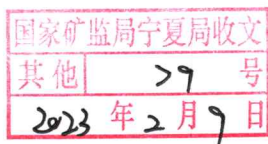 国家矿监局宁夏局收文
其他 29 号
2023 年 2 月 9 日